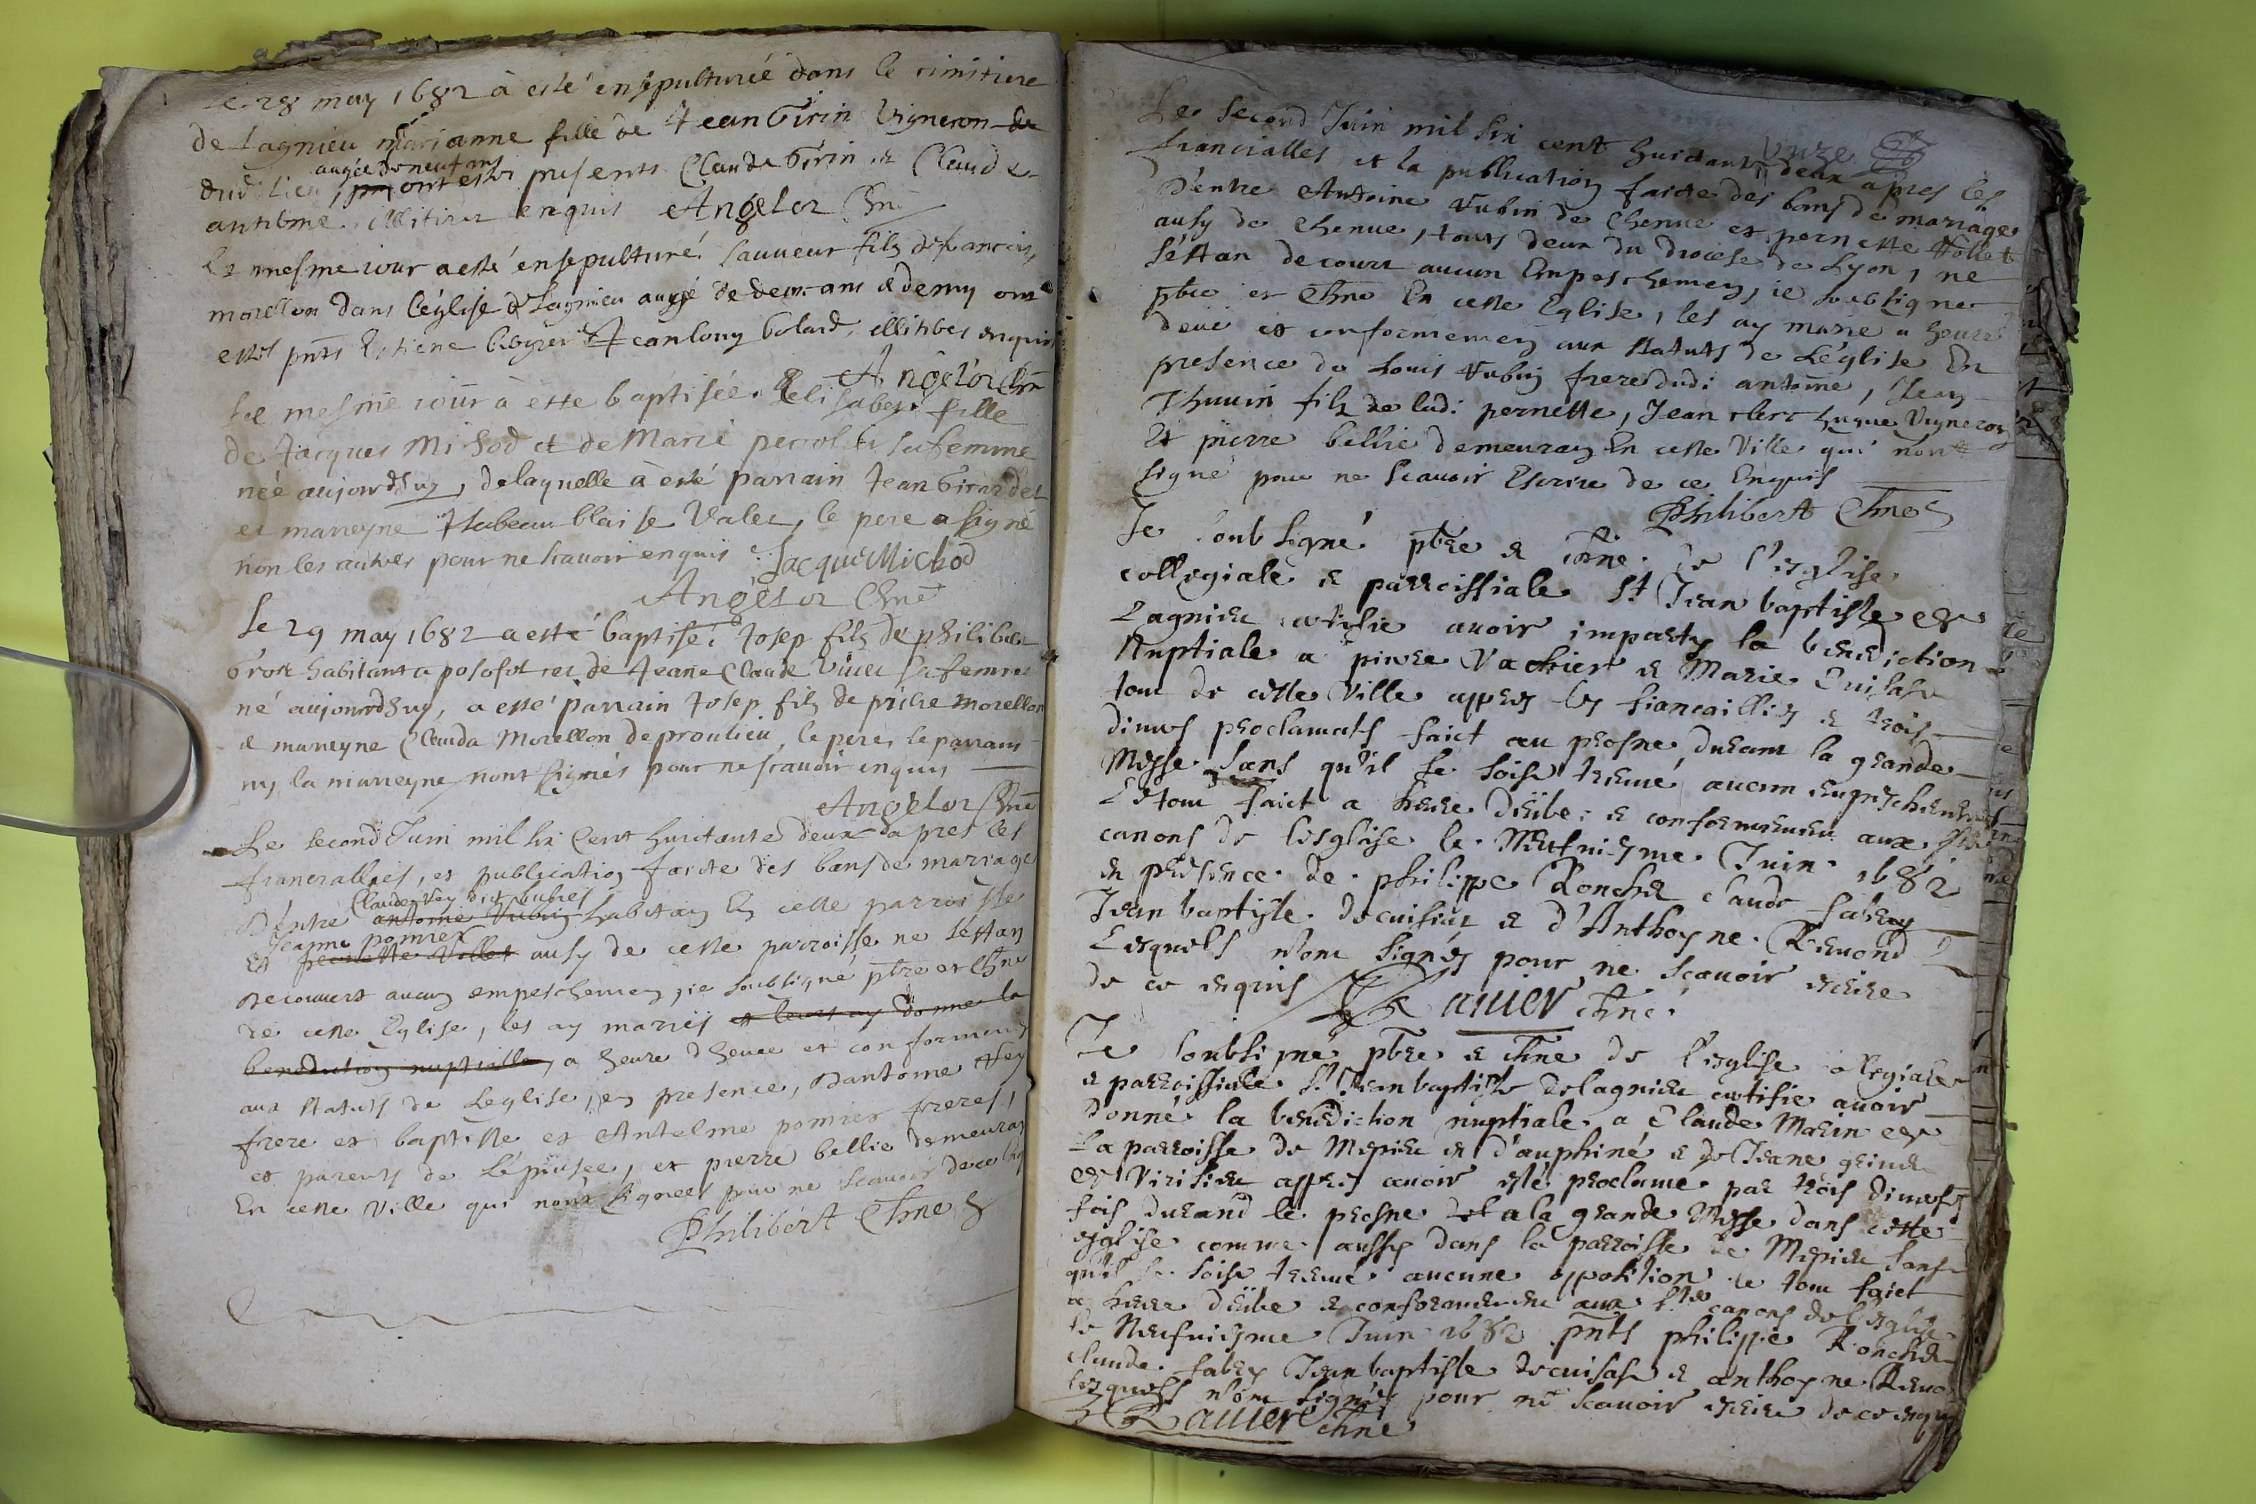 Le 28 may 1682 à esté ensepulturée dans le cimitiere
de Lagnieu marianne fille de Jean Girin Vigneron de
dud. lieu augée de neuf ans, ont estes presents Claude Girin et Claude
antelme illitires enquis Angelot Chne
Le mesme iour a esté ensepulturé sauueur fils de francois
morellon dans l'église de Lagnieu augé de deux ans & demy ont
estes pnts Estiene & Jean louy bolard, illitires enquis
Angelot Chne
Le mesme iour à este baptisée Elisabey fille
de Jacques Michod et de Marie perrolet sa femme
née aujourdhuy, de laquelle à esté parrain Jean Girardet
et marreyne Isabeau blaise Valet, le pere a signé
non les autres pour ne scauoir enquis Jacque Michod
Angelot Chne
Le 29 may 1682 a esté baptisé Josep fils de philibert
habitant a posafol et de Jeane Claude sa femme
né aujourdhuy, a esté parrain Josep fils de morellon
& marreyne Clauda Morellon de proulieu, le pere, le parrain
ny la marreyne nont signés pour ne scauoir enquis
Angelot Chne
Le second Juin mil six Cent huictante deux apres les
fiancialles, et publication faicte des bans de mariage
D'entre Claude Vey dict antoine Vubin habitan En cette parroisse
Et Jeanne pomier pernette Vollet ausy de cette parroisse ne s'éstan
decouuert aucun empeschemen, ie soubsigné pbre et Chne
de cette Eglise, les ay mariés et leurs ay donné la
benediction nuptialle, a heure dheuee et conformemen
aux statuts de Leglise, en presence, Dantoine Vey
frere et baptiste et Antelme pomier freres,
et parents de Lépousee, et pierre bellie demeuran
En cette Ville qui nont signees pour ne scauoir de ce enq
Philibert Chne
Vnze
Le second Juin mil six cent huictante deux apres les
fiancialles et la publication faicte des bans de mariage
D'entre Antoine Vubin de Chenue et pernette Vollet
ausy de Chenue, touts deux du diocese de Lyon, ne
s'éstan decouuert aucun Empeschemen, ie soubsigne
pbre et Chne En cette Eglise, les ay marie a heure
deue et conformemen aux statuts de L'église En
presence de Louis Vubin frere dudi antoine, Jean
Thuuin fils de ladi pernette, Jean clerc Vigneron
Et pierre bellie demeuran En cette Ville qui nont
signé pour ne scauoir Escrire de ce Enquis
Philibert Chne
Je soubsigné pbre et chne de l'esglise
collegiale et parroissiale St Jean baptiste de
Lagnieu certifie auoir imparty la benediction
Nuptiale a pierre Vachier et Marie Cuisat
tout de cette Ville appres les fiancailles et trois
dimes proclamats faict au prosne durant la grande
Messe sans qu'il se soise treuué aucun enpeschement
Letout faict a heure deube et conformement aux
canons de l'esglise le Neufuiesme Juin 1682
en presence de philippe Ronchet claude fabry
Jean baptiste decuisat et d'Anthoyne Remond
Lesquels n'ont signés pour ne scauoir escrire
de ce enquis Rauier chne
Je soubsigné pbre et chne de l'esglise collegiale
et parroissiale St Jean baptiste de lagnieu certifie auoir
donné la benediction nuptiale a Claude Morin de
La parroisse de Mepieu en d'auphiné et de Jeane
de Virisieu appres auoir esté proclame par trois dimes
fois durand le prosne de la grande Messe dans cette
esglise comme aussy dans la parroisse de Mepieu sans
qu'il se soise treuué aucune opposition le tout faict
a heure deube et conformement aux Sts canons de l'esglise
le Neufuiesme Juin 1682 pnts philippe Ronchet
claude fabry Jean baptiste decuisat et anthoyne Remo
lesquels n'ont signés pour ne scauoir escrire de ce enquis
Rauier chne